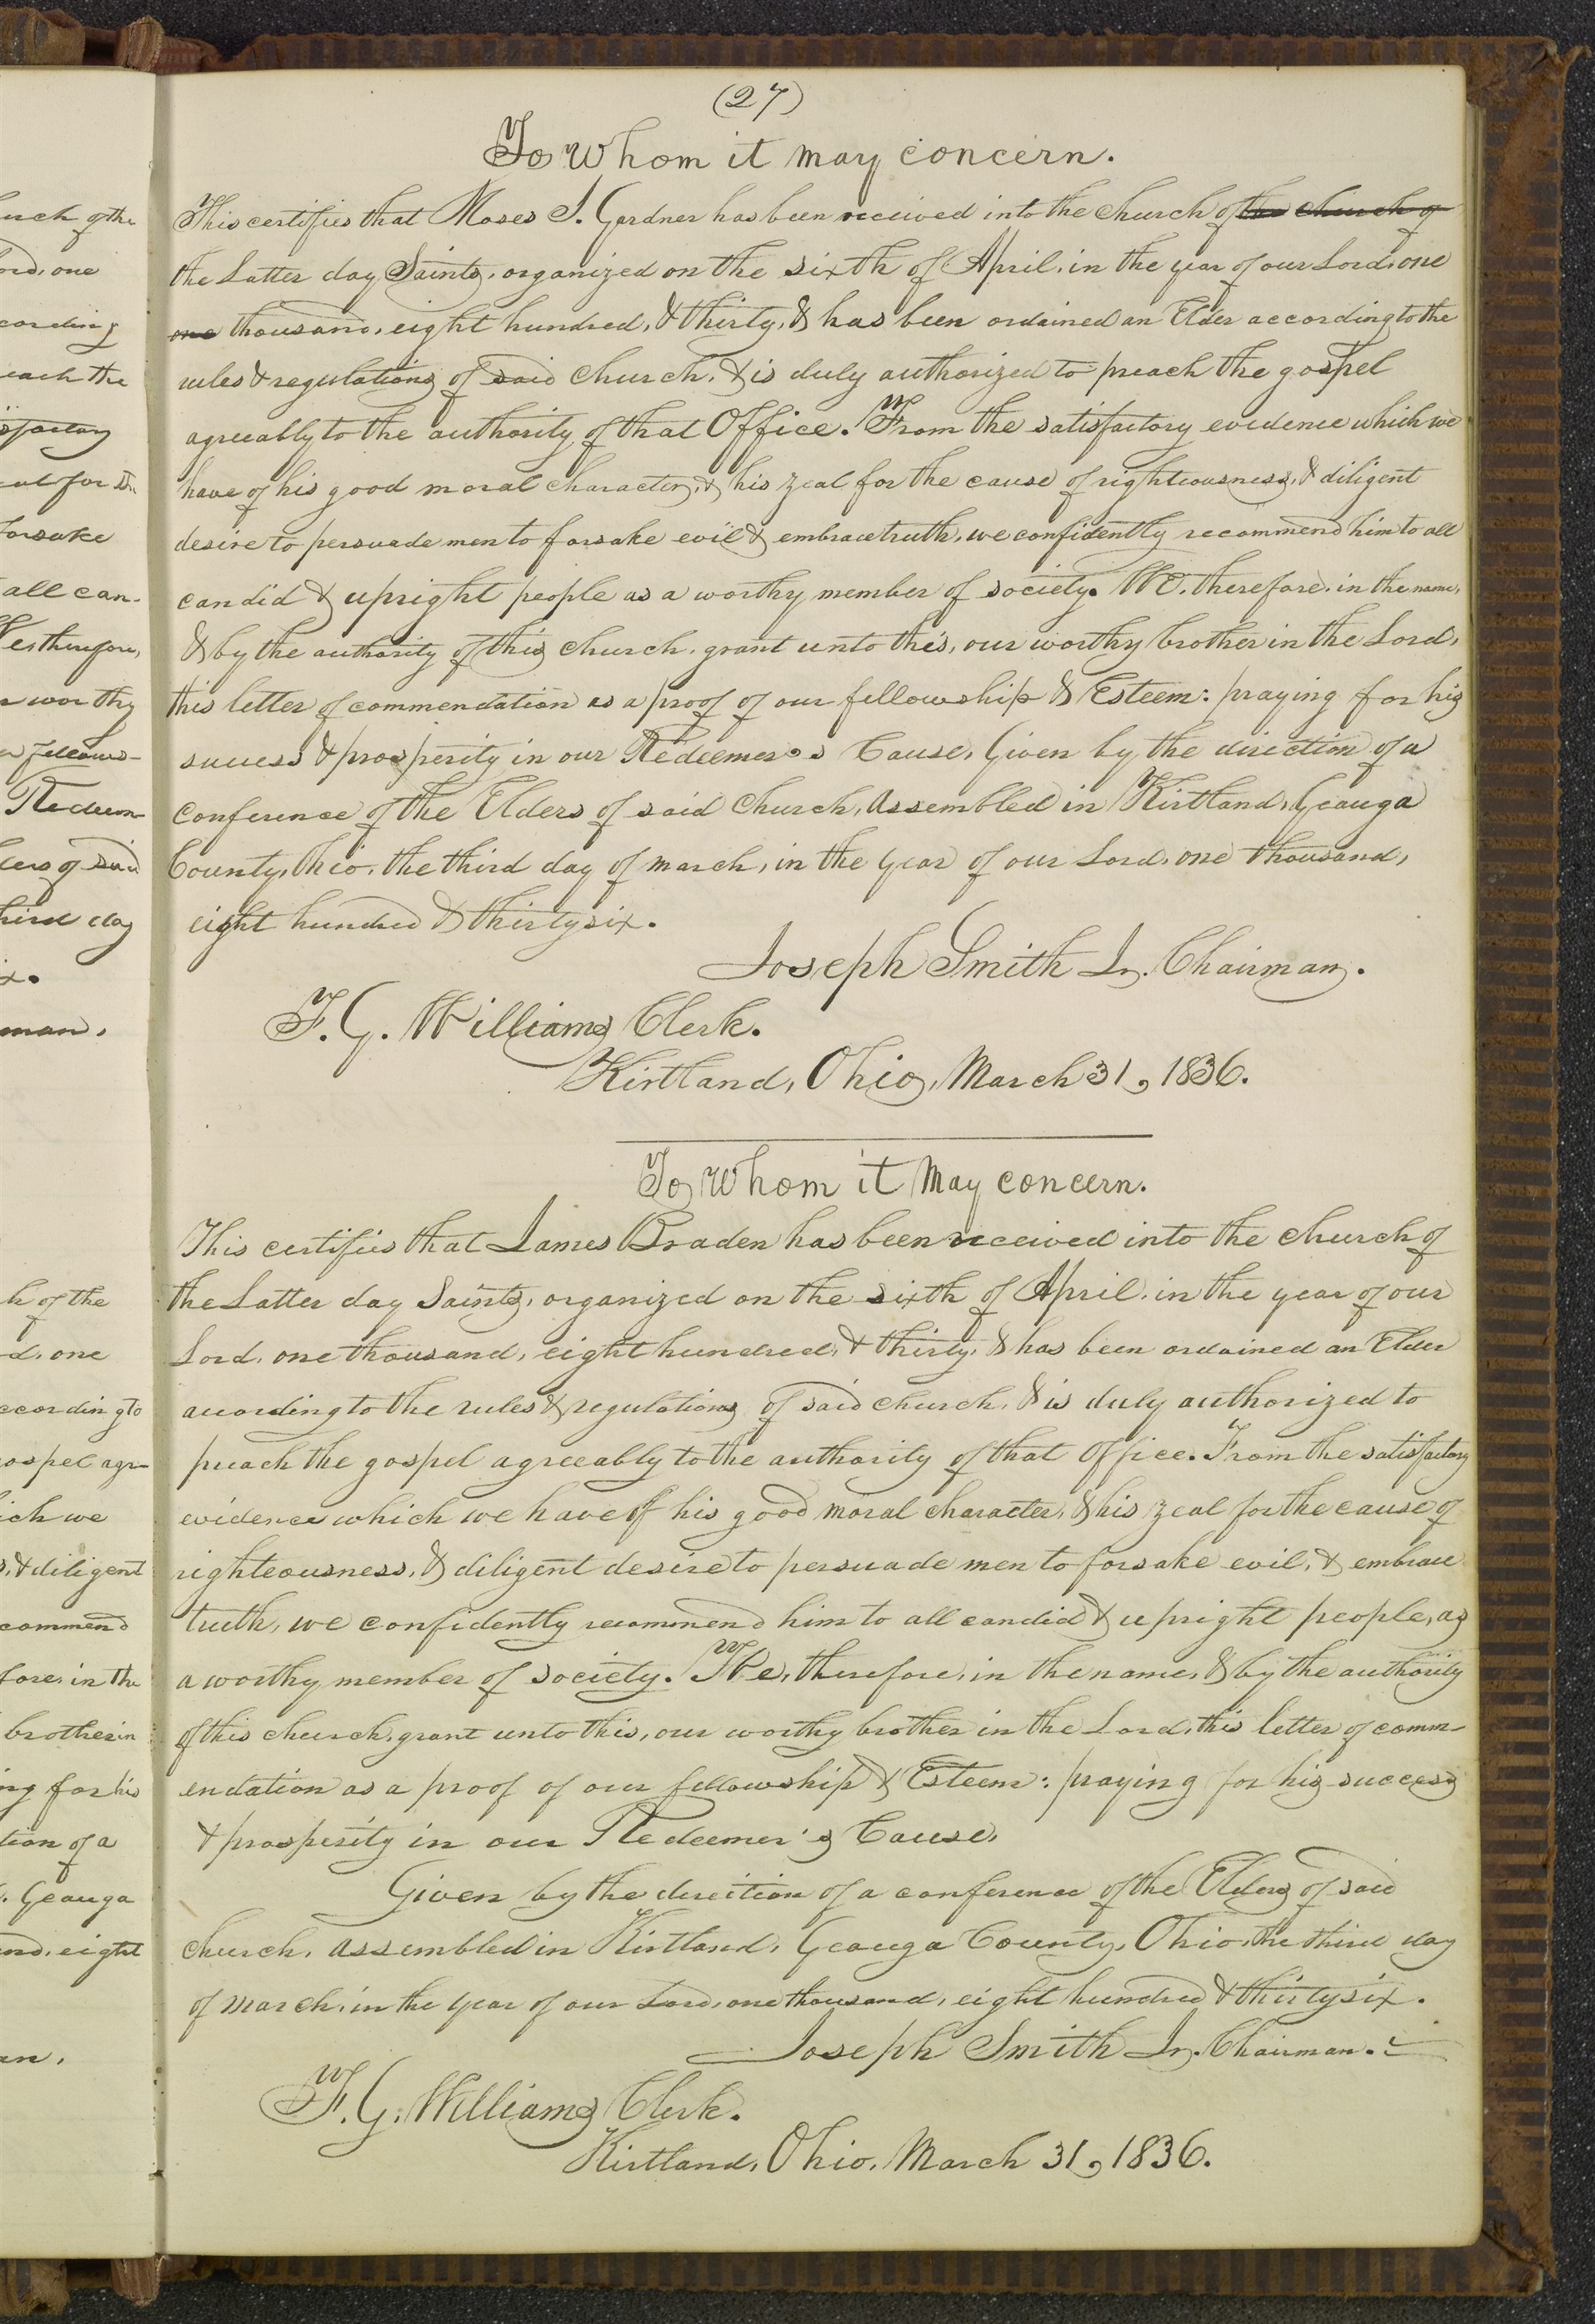 (27)
To Whom it may concern.
This certifies that Moses S. Gardner has been received into the church of the church of
the Latter day Saints, organized on the sixth of April, in the year of our Lord, one
one thousand, eight hundred, & thirty, & has been ordained an Elder according to the
rules & regulations of said church, & is duly authorized to preach the gospel
agreeably to the authority of that Office. From the satisfactory evidence which we
have of his good moral character, & his zeal for the cause of righteousness, & diligent
desire to persuade men to forsake evil & embrace truth, we confidently recommend him to all
candid & upright people as a worthy member of society. We, therefore, in the name,
& by the authority of this church, grant unto this, our worthy brother in the Lord,
this letter of commendation as a proof of our fellowship & Esteem: praying for his
success & prosperity in our Redeemer's Cause, Given by the direction of a
conference of the Elders of said church, assembled in Kirtland, Geauga
County, Ohio, the third day of march, in the year of our Lord, one thousand,
eight hundred & thirty six.
Joseph Smith Jr. Chairman.
F. G. Williams Clerk.
Kirtland, Ohio, March 31, 1836.
To Whom it May concern.
This certifies that James Braden has been received into the church of
the Latter day Saints, organized on the sixth of April, in the year of our
Lord, one thousand, eight hundred, & thirty, & has been ordained an Elder
according to the rules & regulations of said church, & is duly authorized to
preach the gospel agreeably to the authority of that Office. From the satisfactory
evidence which we have of his good moral character, & his zeal for the cause of
righteousness, & diligent desire to persuade men to forsake evil, & embrace
truth, we confidently recommend him to all candid & upright people, as
a worthy member of society. We, therefore, in the name, & by the authority
of this church, grant unto this, our worthy brother in the Lord, this letter of comm-
endation as a proof of our fellowship & Esteem: praying for his success
& prosperity in our Redeemer's Cause,
Given by the direction of a conference of the Elders of said
church, assembled in Kirtland, Geauga County, Ohio, the third day
of march, in the year of our Lord, one thousand, eight hundred & thirty six.
Joseph Smith Jr. Chairman.
F. G. Williams Clerk.
Kirtland, Ohio, March 31, 1836.